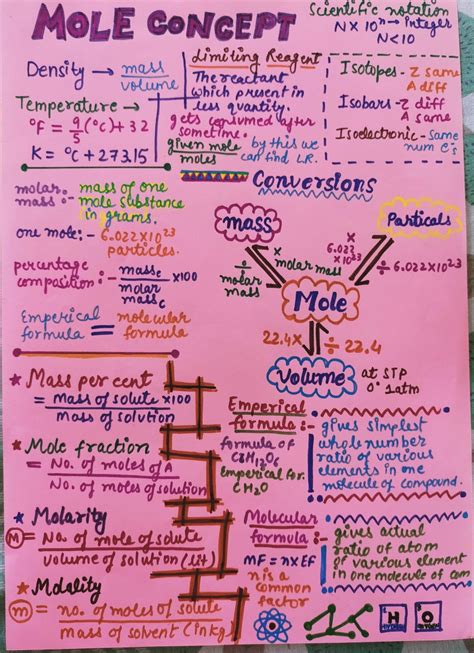 MOLE CONCEPT
Scientific notation
N×10ⁿ→Integer
N<10
Density → mass
volume
Temperature →
°F = 9/5 (°C)+32
K = °C + 273.15
Limiting Reagent
The reactant
which present in
less quantity.
gets consumed after
sometime.
given mole
moles
by this we
can find L.R.
Isotopes - Z same
A diff
Isobars - Z diff
A same
Isoelectronic - Same
num e⁻s
molar
mass :- mass of one
mole substance
in grams.
one mole :- 6.022×10²³
particles.
percentage
composition :- massc ×100
molar
massc
Emperical
formula = molecular
formula
Conversions
mass
Particals
× molar mass
÷ molar mass
× 6.022 ×10²³
÷ 6.022×10²³
Mole
22.4×
÷ 22.4
Volume
at STP
0° 1atm
★ Mass per cent
= Mass of solute ×100
Mass of solution
★ Mole fraction
= No. of moles of A
No. of moles of solution
★ Molarity
M = No. of mole of solute
volume of solution (lit)
★ Molality
m = no. of moles of solute
mass of solvent (in kg)
Emperical
formula :-
formula of
Emperical for
CH2O
gives simplest
whole number
ratio of various
elements in one
molecule of compound.
Molecular
formula :-
MF = n×EF
n is a
common
factor
gives actual
ratio of atom
of various element
in one molecule of com
H
HYDROGEN
O
OXYGEN